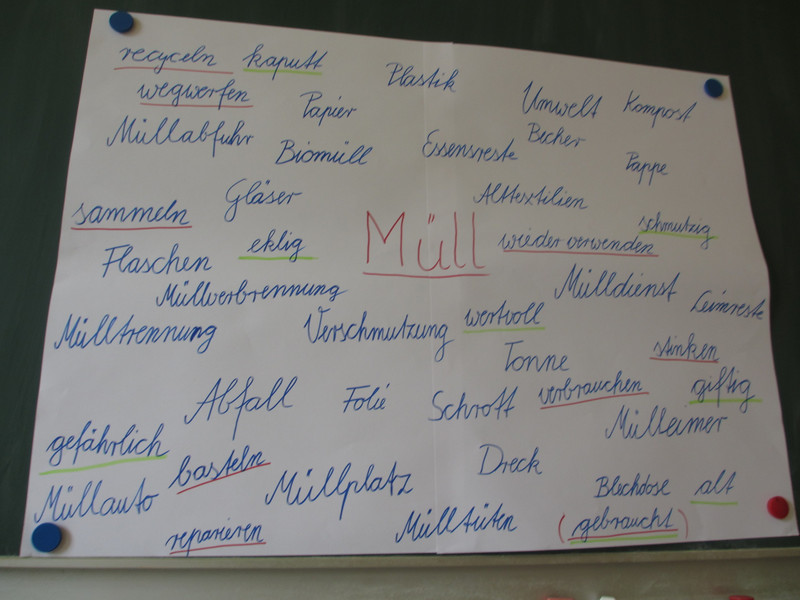 recyceln kaputt Plastik
wegwerfen Papier Umwelt Kompost
Müllabfuhr Biomüll Essensreste Becher
Pappe
sammeln Gläser Alttextilien
schmutzig
Flaschen eklig Müll wieder verwenden
Müllverbrennung Mülldienst Leimreste
Mülltrennung Verschmutzung wertvoll
Tonne stinken
Abfall Folie Schrott verbrauchen giftig
Mülleimer
gefährlich basteln Dreck
Müllauto Müllplatz Blechdose alt
reparieren Mülltüten (gebraucht)